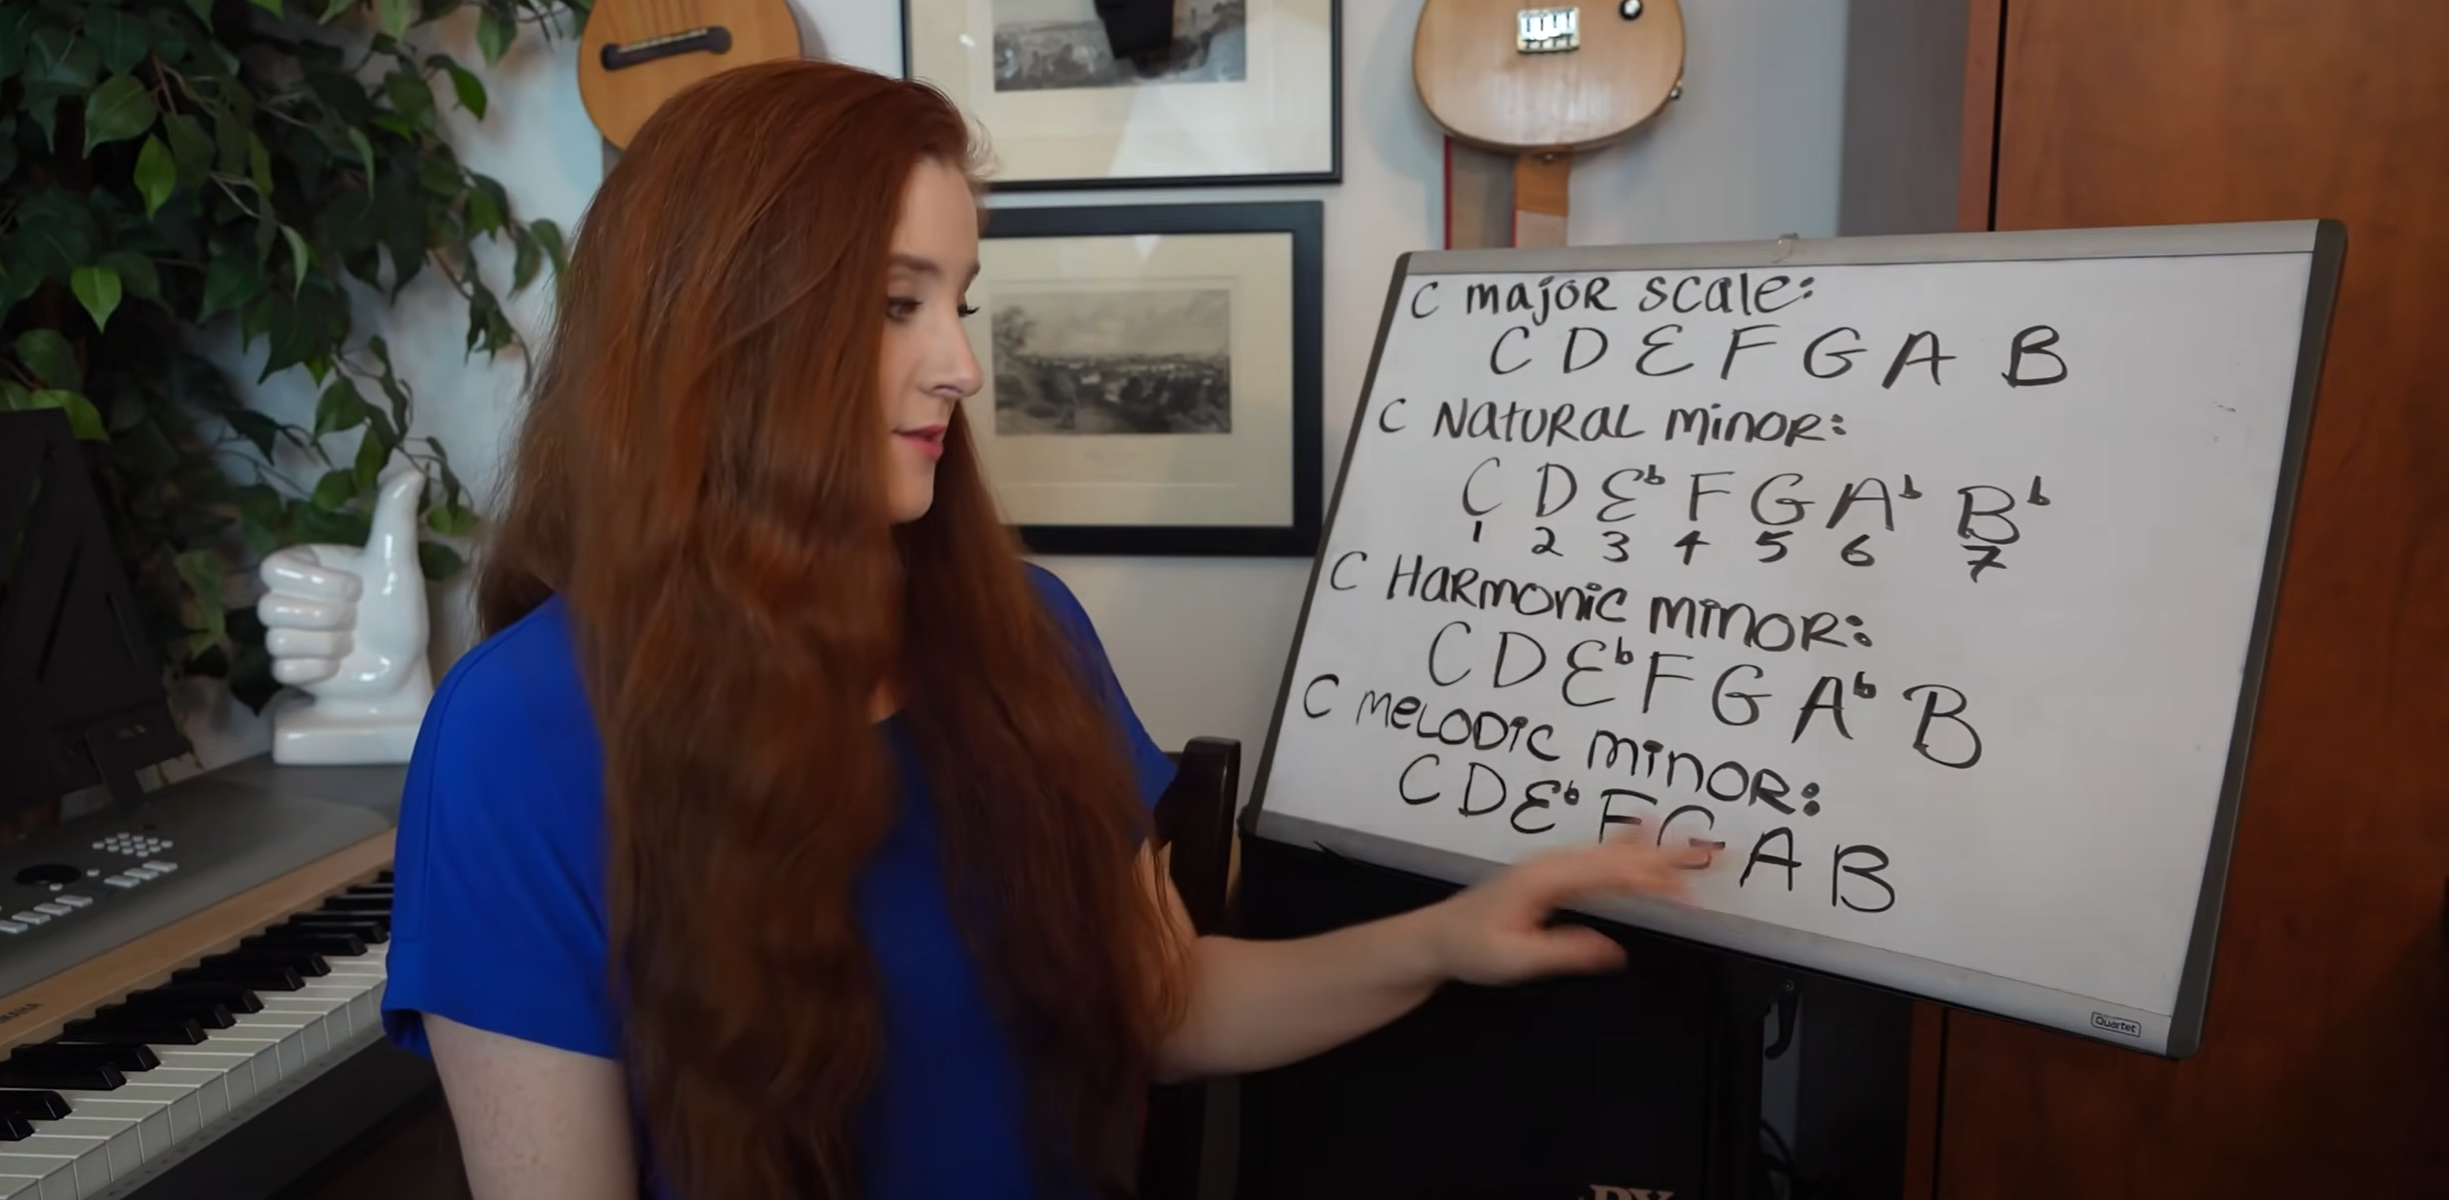 C major scale:
C D E F G A B
C Natural minor:
C D E♭ F G A♭ B♭
1 2 3 4 5 6 7
C Harmonic minor:
C D E♭ F G A♭ B
C melodic minor:
C D E♭ F G A B
Quartet